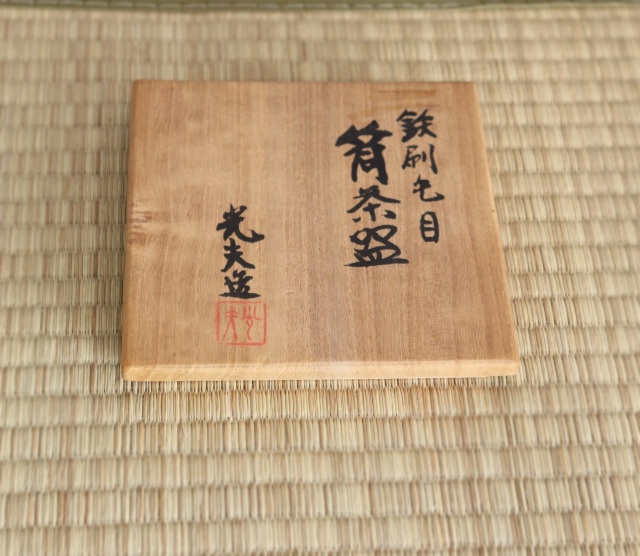 鉄刷毛目
筒茶盌
光夫造
光夫